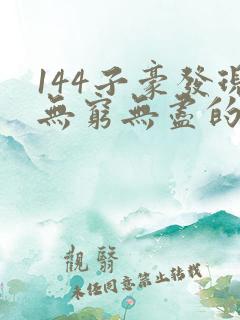 144子豪發現
無窮無盡的
觀翳
未任同意禁止转载